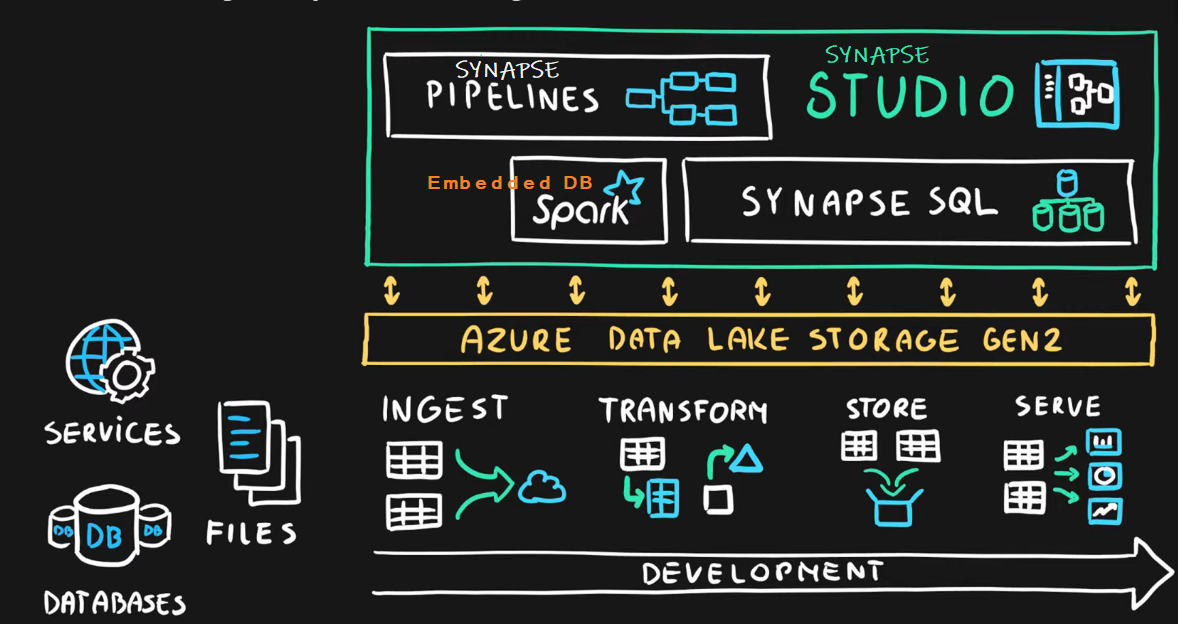 SYNAPSE
PIPELINES
SYNAPSE
STUDIO
Embedded DB
Spark
SYNAPSE SQL
AZURE DATA LAKE STORAGE GEN2
SERVICES
FILES
DB DB DB
DATABASES
INGEST
TRANSFORM
STORE
SERVE
DEVELOPMENT